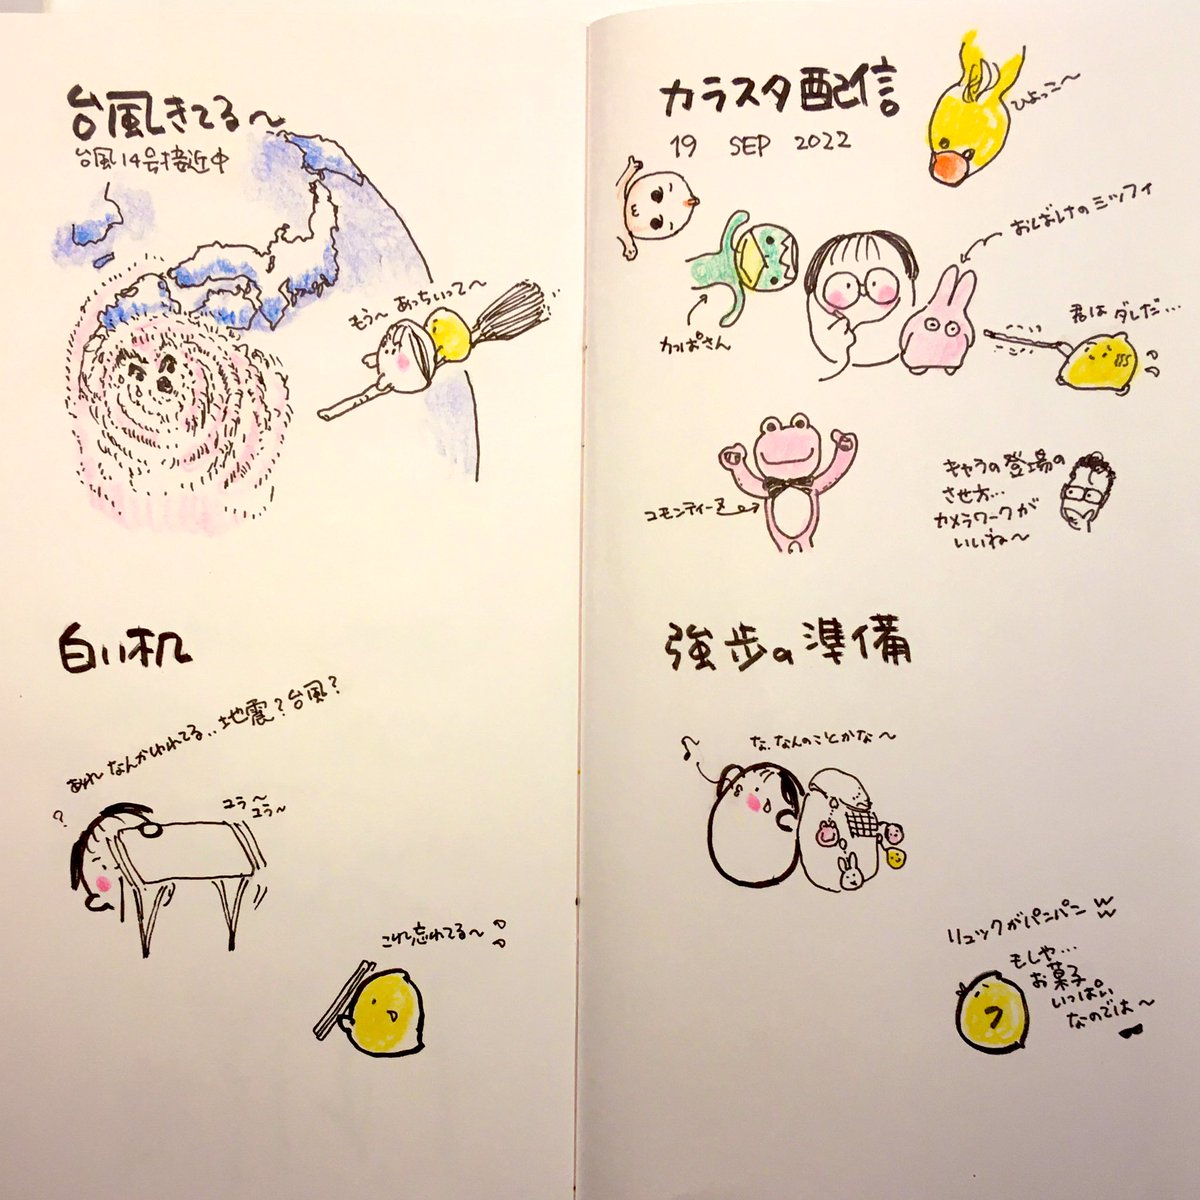 台風きてる〜
台風14号接近中
もう〜 あっちいって〜
白い机
あれ なんかゆれてる..地震？台風？
?
ユラ〜
ユラ〜
これ忘れてる〜
カラスタ配信
19 SEP 2022
ひよっこ〜
おばけのミッフィ
かっぱさん
君は ダレだ…
コモンティーヌ
キャラの登場の
させ方…
カメラワークが
いいね〜
強歩の準備
な、なんのことかな〜
リュックがパンパン w
w
もしや…
お菓子
いっぱい
なのでは〜